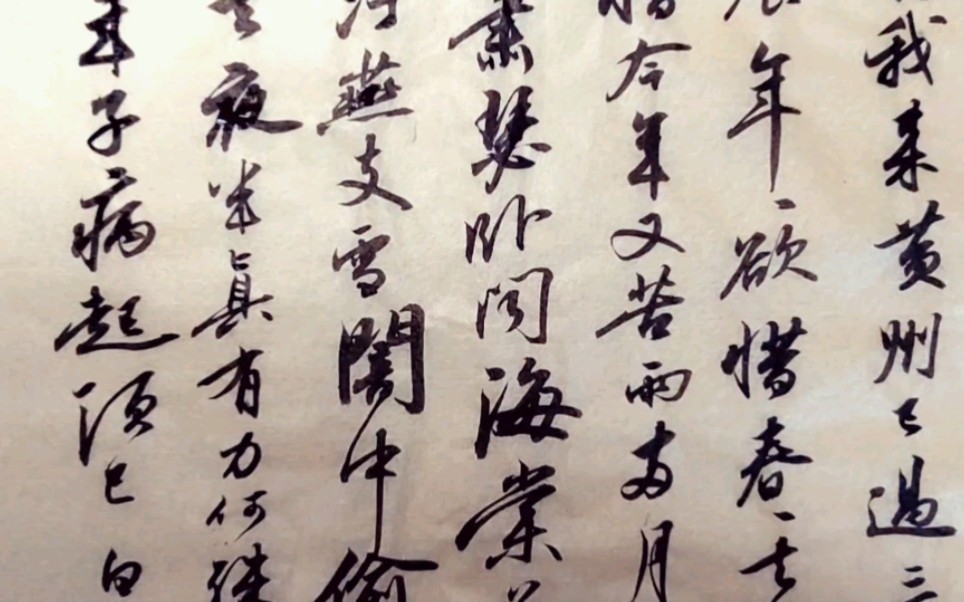 我来黄州已過三
年〻欲惜春〻去
惜今年又苦雨兩月
蕭瑟卧聞海棠
污燕支雪闇中偷
去夜半真有力何殊
年子病起須已白